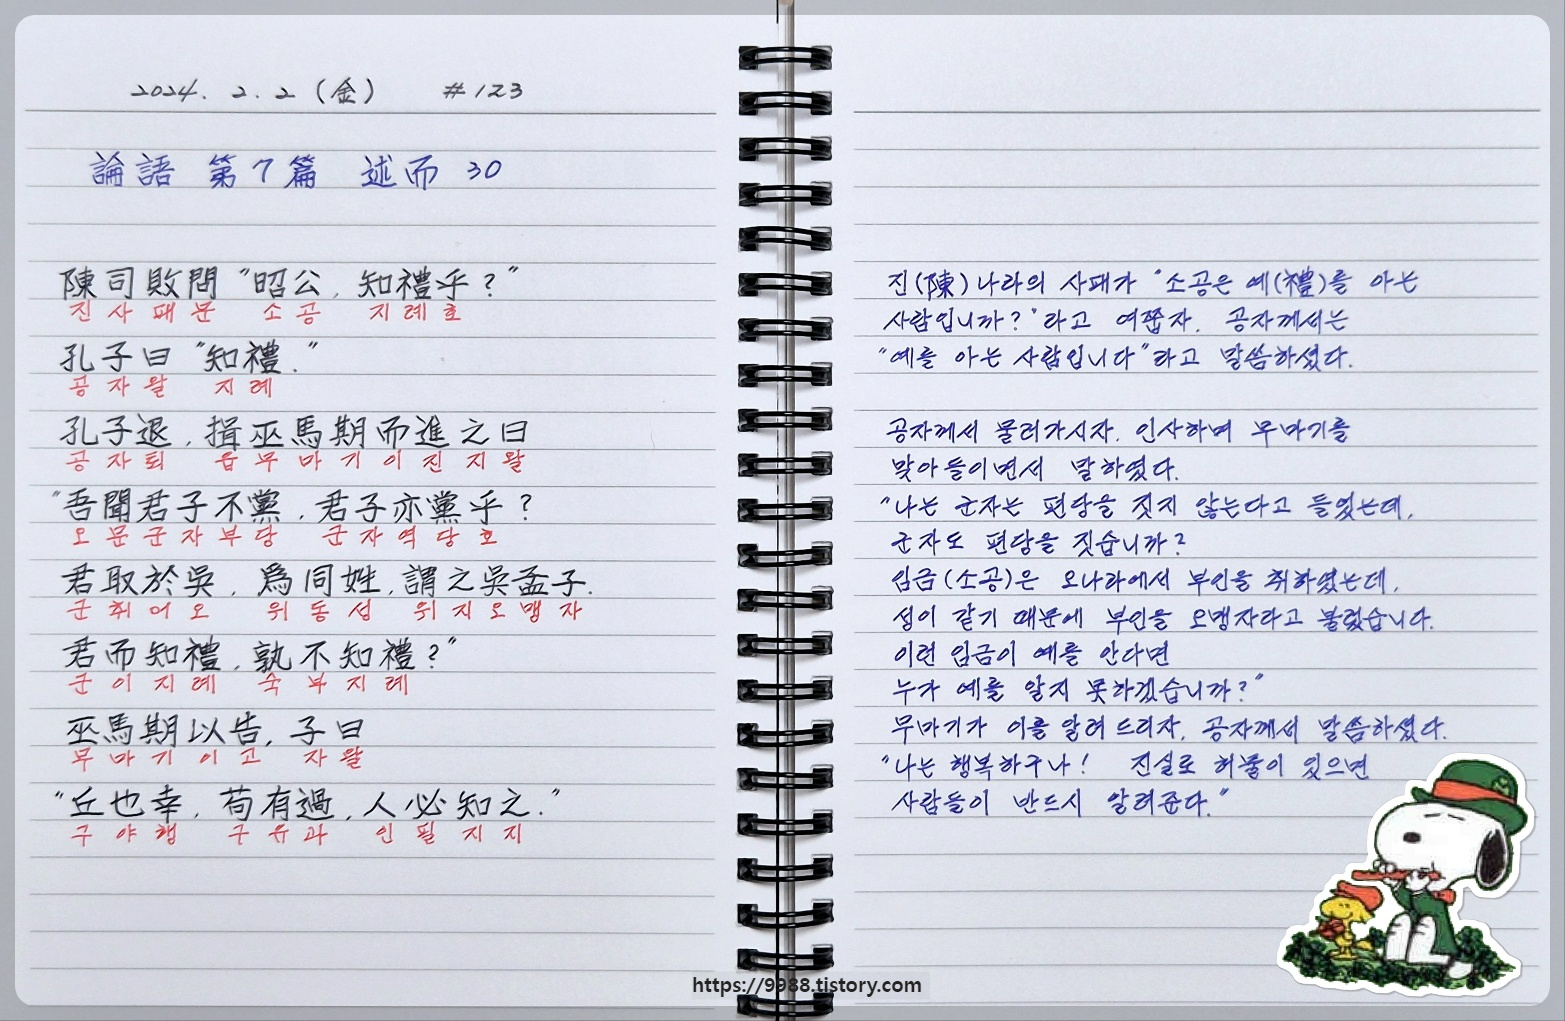 2024. 2. 2 (金) #123
論語 第7篇 述而 30
陳司敗問 "昭公, 知禮乎?"
진사패문 소공 지례호
孔子曰 "知禮."
공자왈 지례
孔子退, 揖巫馬期而進之曰
공자퇴 읍무마기이진지왈
"吾聞君子不黨, 君子亦黨乎?
오문군자부당 군자역당호
君取於吳, 爲同姓, 謂之吳孟子.
군취어오 위동성 위지오맹자
君而知禮, 孰不知禮?"
군이지례 숙부지례
巫馬期以告, 子曰
무마기이고 자왈
"丘也幸, 苟有過, 人必知之."
구야행 구유과 인필지지
진(陳)나라의 사패가 "소공은 예(禮)를 아는
사람입니까?"라고 여쭙자, 공자께서는
"예를 아는 사람입니다"라고 말씀하셨다.
공자께서 물러가시자, 인사하며 무마기를
맞아들이면서 말하였다.
"나는 군자는 편당을 짓지 않는다고 들었는데,
군자도 편당을 짓습니까?
임금(소공)은 오나라에서 부인을 취하였는데,
성이 같기 때문에 부인을 오맹자라고 불렀습니다.
이런 임금이 예를 안다면
누가 예를 알지 못하겠습니까?"
무마기가 이를 알려 드리자, 공자께서 말씀하셨다.
"나는 행복하구나! 진실로 허물이 있으면
사람들이 반드시 알려준다."
https://9988.tistory.com